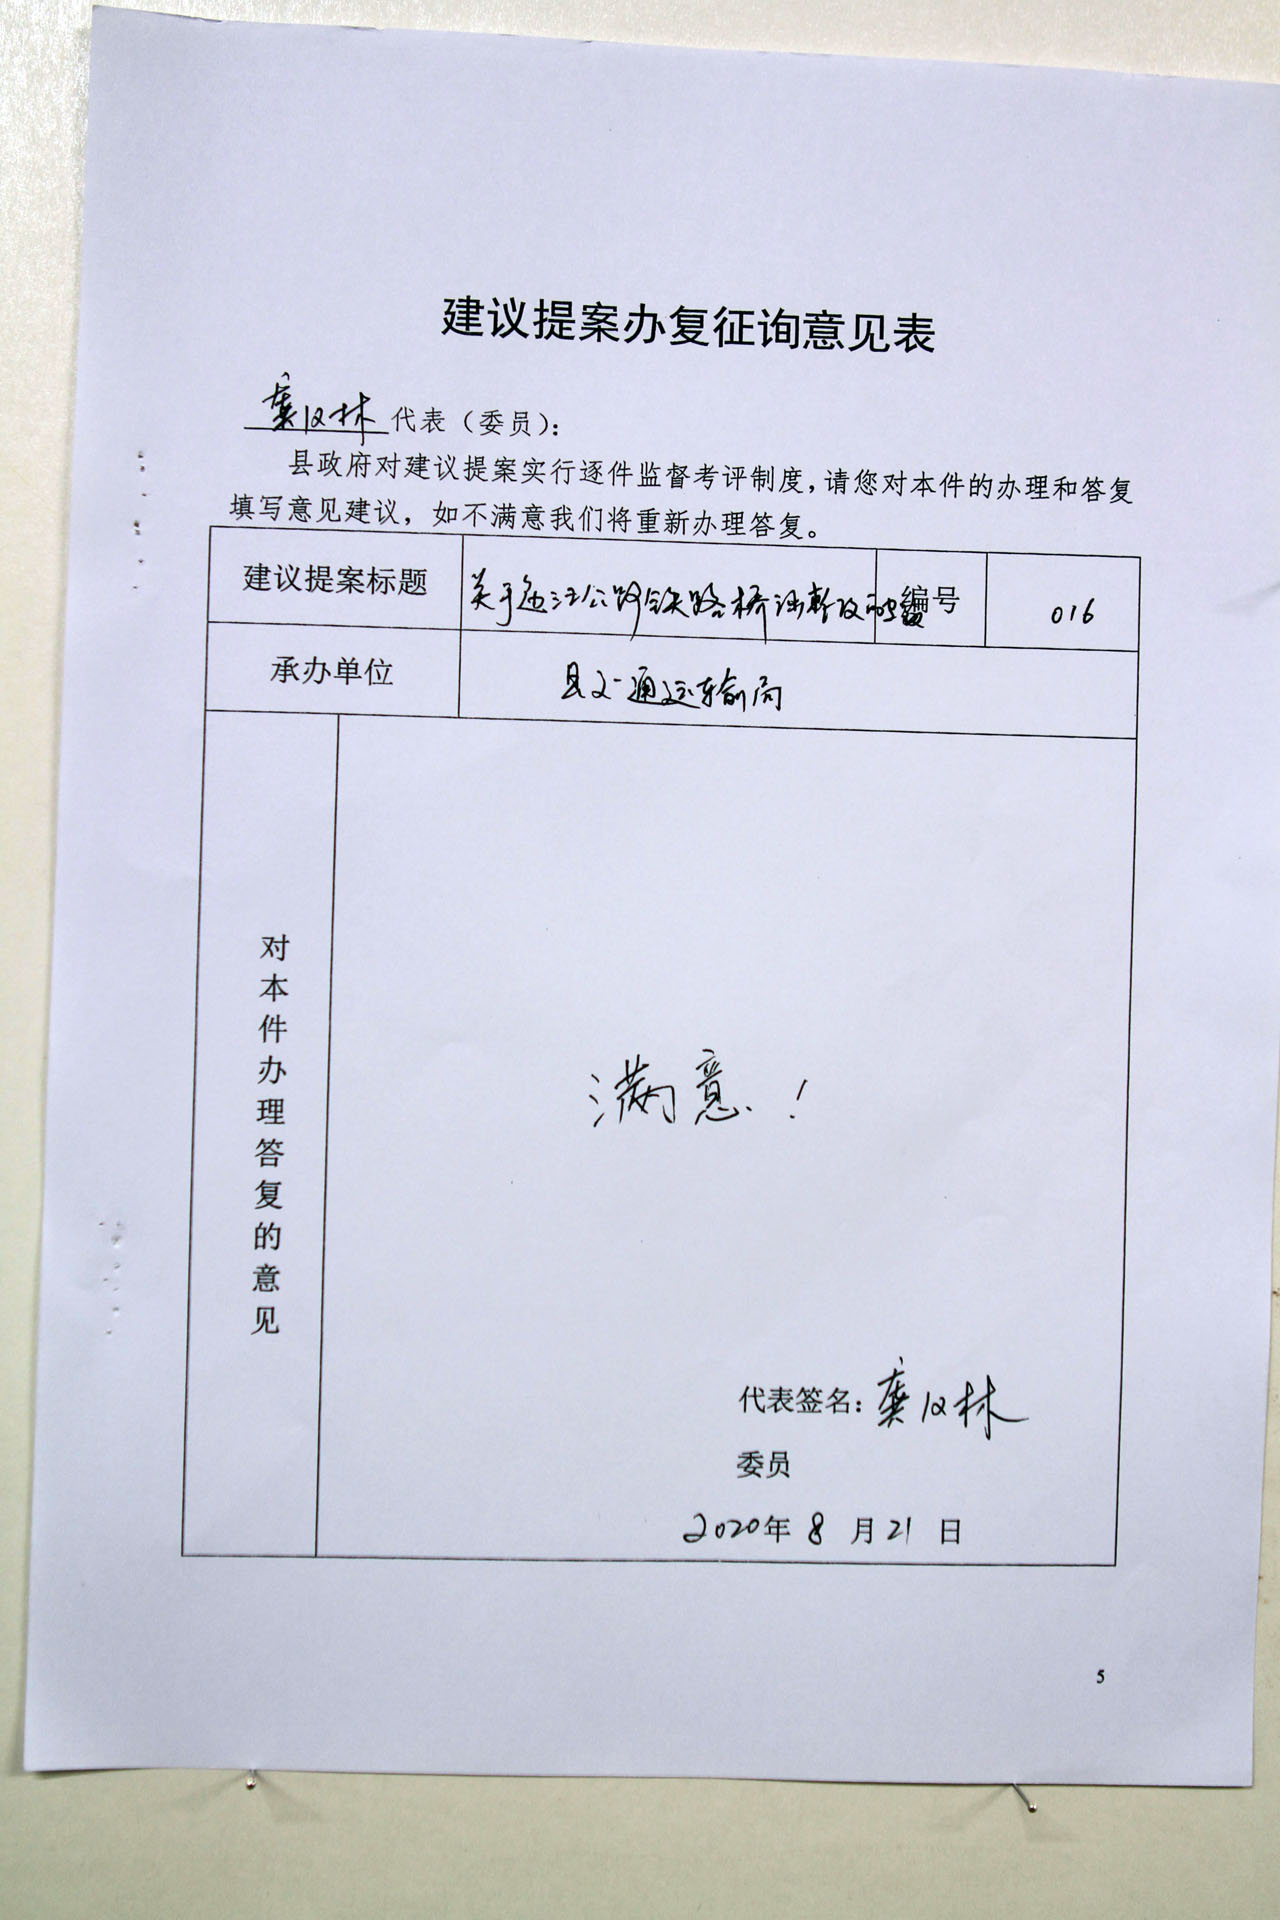 建议提案办复征询意见表
龚仪林代表（委员）：
县政府对建议提案实行逐件监督考评制度，请您对本件的办理和答复
填写意见建议，如不满意我们将重新办理答复。
建议提案标题 关于 公路铁路桥涵 改 编号 016
承办单位 县交通运输局
对本件办理答复的意见
满意！
代表签名：龚仪林
委员
2020年8月21日
5